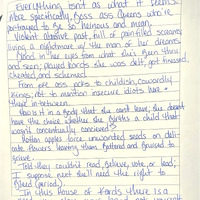 Everything isn't as what it seems
More specifically, boss ass Queens who're
portrayed to be so heinous and mean.
Violent abusive past, full of pain-filled screams
living a nightmare w/ the man of her dreams.
Dead in her eyes from what she's been thru
and seen; played cards she was delt, got finessed,
cheated, and schemed.
From eve ass jacks to childish, cowardly
Kings; not to mention insecure idiots
there in-between.
in a body that she can't leave; she doesn't
have the choice whether she births a child that
wasn't consentually conceived?
Rotten apples force unwanted seeds on deli-
cate flowers leaving them battered and bruised to
grieve.
told they couldn't read, believe, vote, or lead;
I suppose next she'll need the right to
bleed (period).
In this house of cards there is a